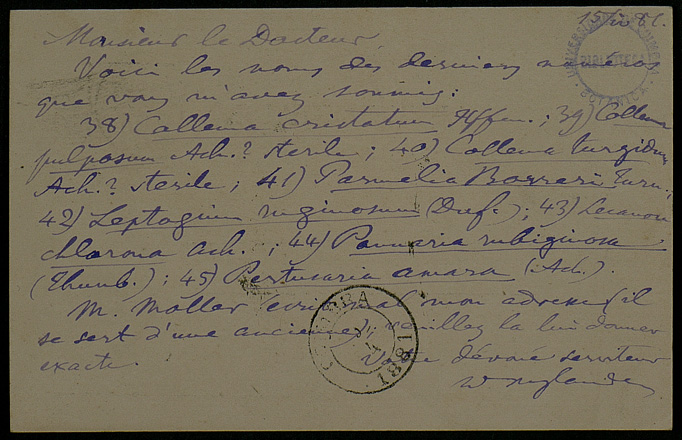 15/IV 81.
Monsieur le Docteur,
Voici les noms des derniers numéros
que vous m'avez soumis:
38) Collema cristatum Hffm.; 39) Collema
pulposum Ach.? sterile; 40) Collema turgidum
Ach.? sterile; 41) Parmelia Borreri Turn.;
42) Leptogium ruginosum (Duf.); 43) Lecanora
chlarona Ach.; 44) Pannaria rubiginosa
(Thunb.); 45) Pertusaria amara (Ach.).
M. Moller écrit mal mon adresse (il
se sert d'une ancienne); veuillez la lui donner
exacte. Votre dévoué serviteur
W Nylander
COIMBRA
1881
BOTANICA